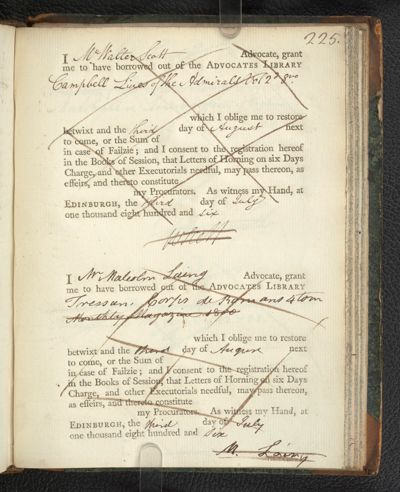 225.
I Mr Walter Scott Advocate, grant
me to have borrowed out of the ADVOCATES LIBRARY
Campbell Lives of the Admirals Vol 2d 8vo
which I oblige me to restore
betwixt and the third day of August next
to come, or the Sum of
in case of Failzie; and I consent to the registration hereof
in the Books of Session, that Letters of Horning on six Days
Charge, and other Executorials needful, may pass thereon, as
effeirs, and thereto constitute
my Procurators. As witness my Hand, at
EDINBURGH, the third day of July
one thousand eight hundred and six
I Mr Malcolm Laing Advocate, grant
me to have borrowed out of the ADVOCATES LIBRARY
Tressan. Corps de Romans 4 tom
Monthly Magazine 1800
which I oblige me to restore
betwixt and the third day of August next
to come, or the Sum of
in case of Failzie; and I consent to the registration hereof
in the Books of Session, that Letters of Horning on six Days
Charge, and other Executorials needful, may pass thereon,
as effeirs, and thereto constitute
my Procurators. As witness my Hand, at
EDINBURGH, the third day of July
one thousand eight hundred and six
M. Laing